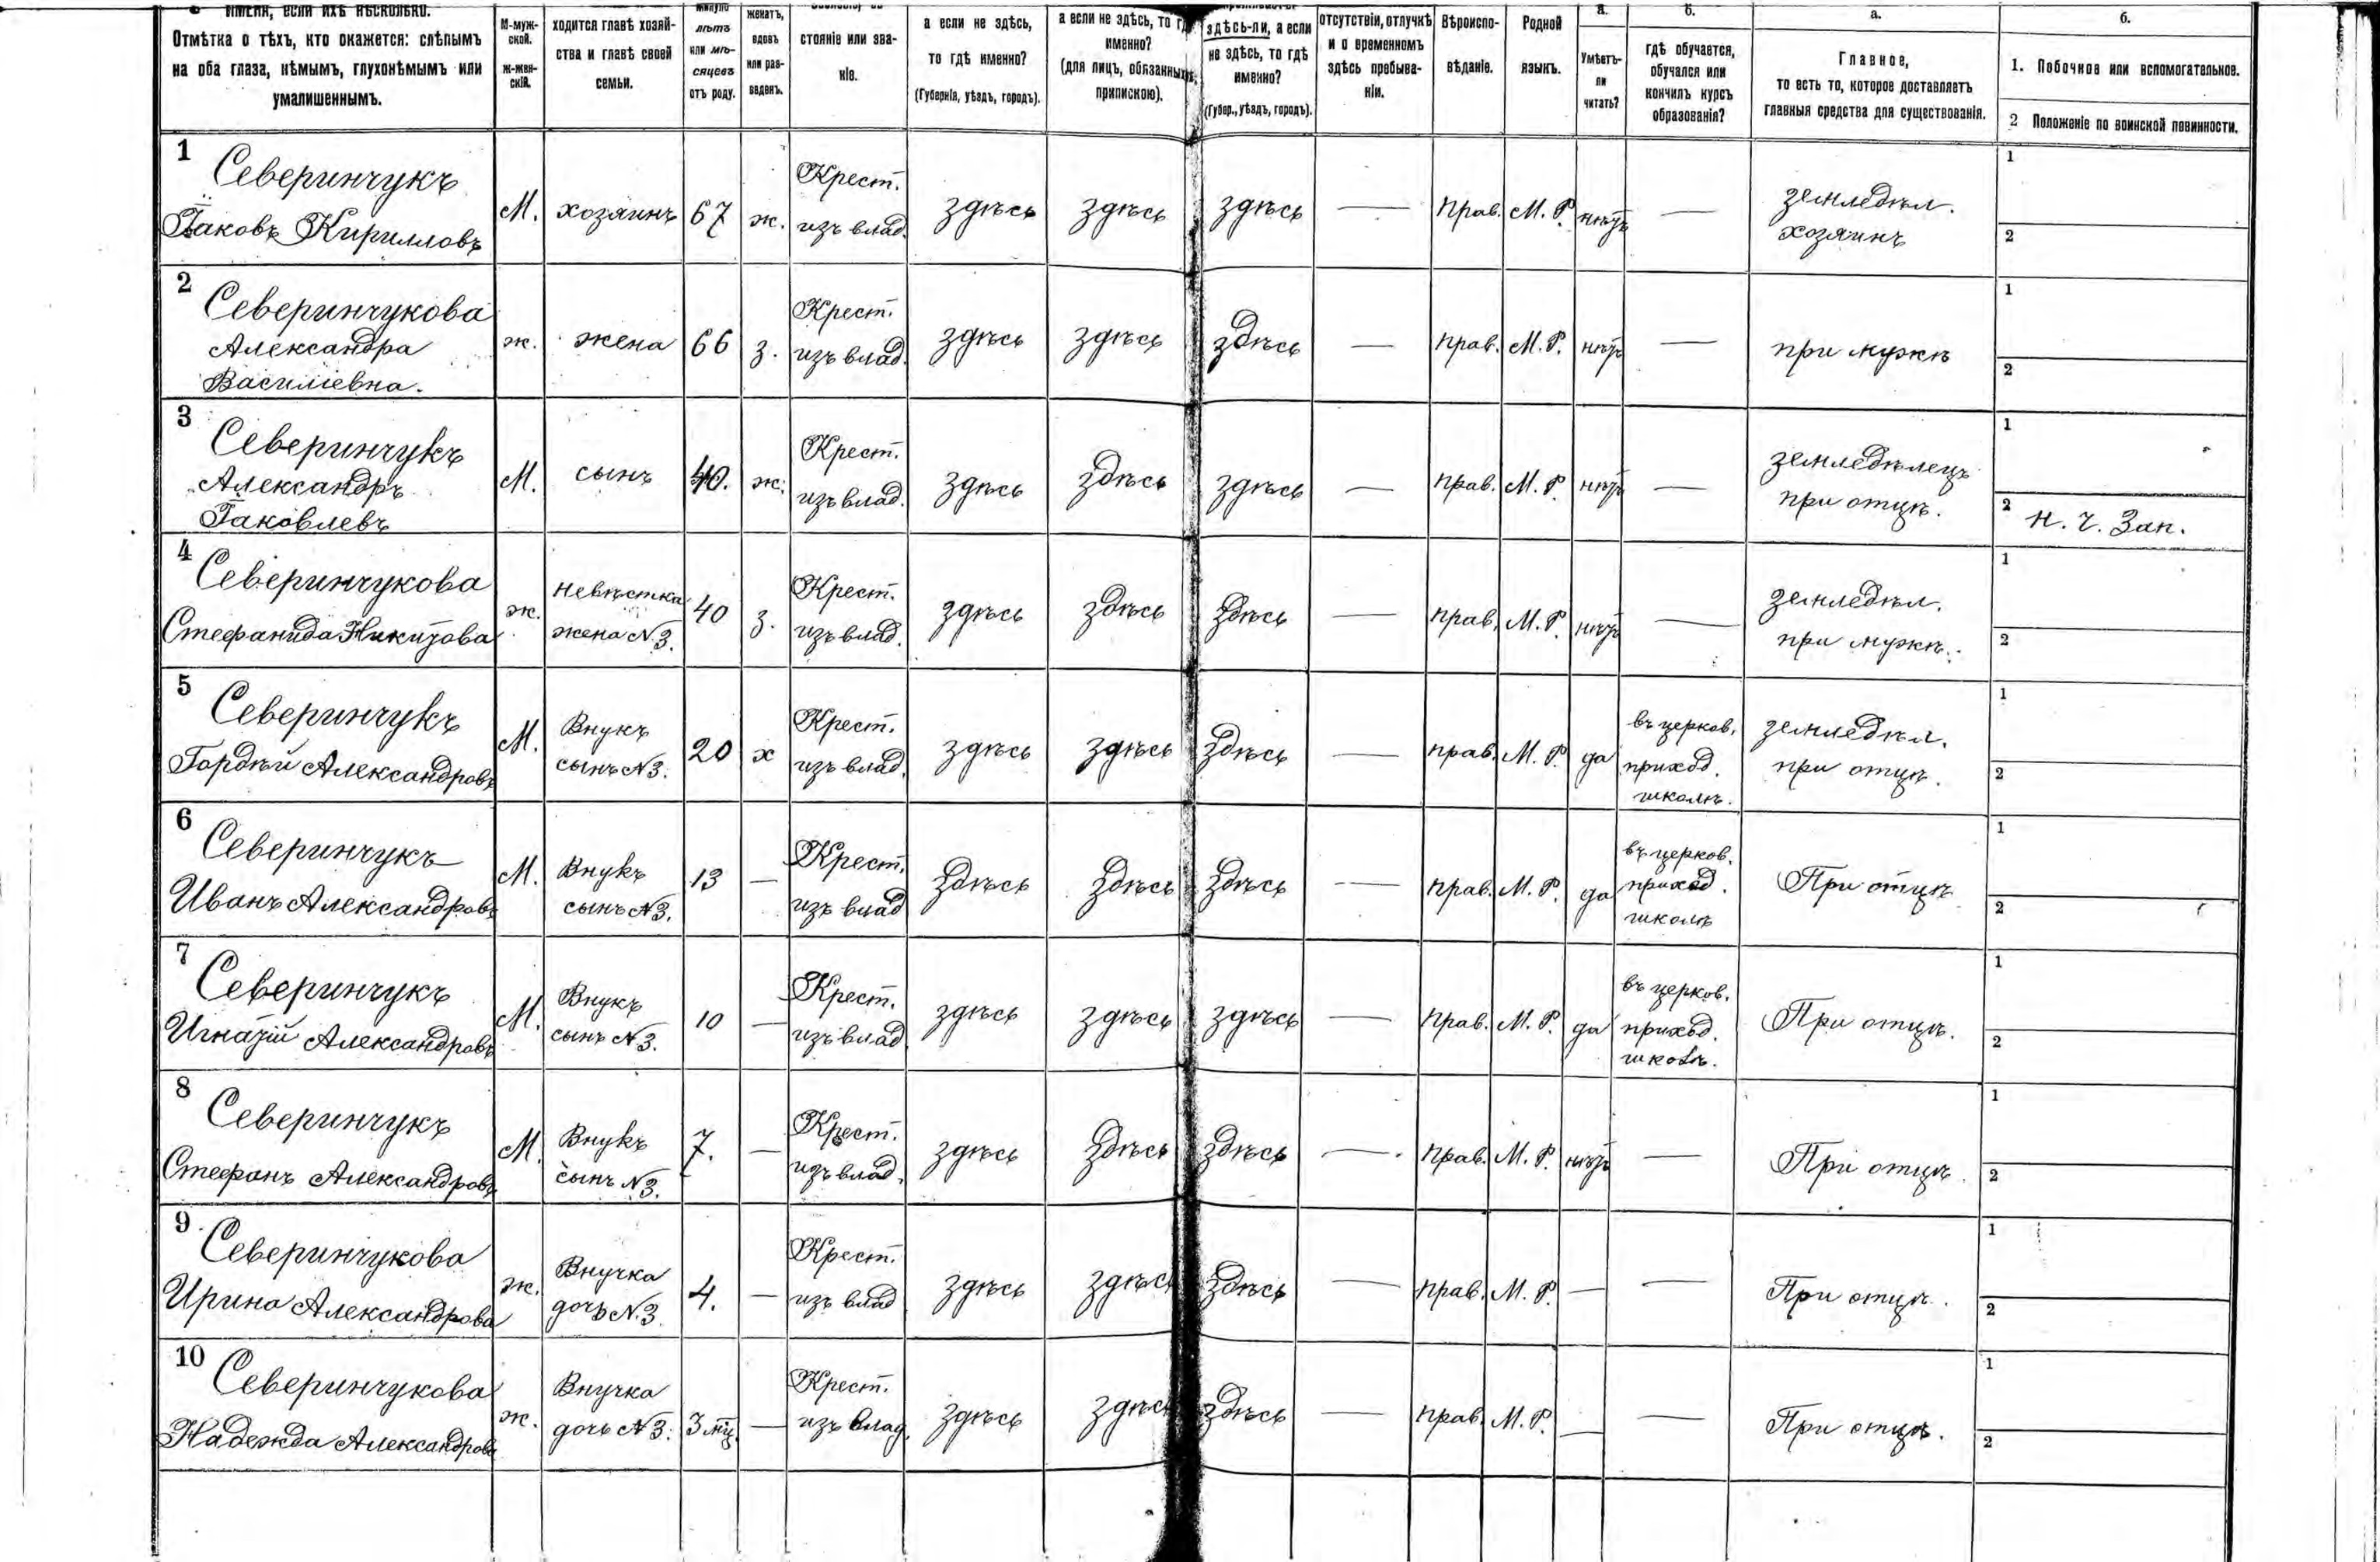 имени, если ихъ нѣсколько.
Отмѣтка о тѣхъ, кто окажется: слѣпымъ
на оба глаза, нѣмымъ, глухонѣмымъ или
умалишеннымъ.
М-муж-
ской.
ж-жен-
скій.
ходится главѣ хозяй-
ства и главѣ своей
семьи.
минуло
лѣтъ
или мѣ-
сяцевъ
отъ роду.
женатъ,
вдовъ
или раз-
веденъ.
стояніе или зва-
ніе.
а если не здѣсь,
то гдѣ именно?
(Губернія, уѣздъ, городъ).
а если не здѣсь, то гдѣ
именно?
(для лицъ, обязанныхъ
припискою).
здѣсь-ли, а если
не здѣсь, то гдѣ
именно?
(Губер., уѣздъ, городъ).
отсутствіи, отлучкѣ
и о временномъ
здѣсь пребыва-
ніи.
Вѣроиспо-
вѣданіе.
Родной
языкъ.
а.
Умѣетъ-
ли
читать?
б.
гдѣ обучается,
обучался или
кончилъ курсъ
образованія?
а.
Главное,
то есть то, которое доставляетъ
главныя средства для существованія.
б.
1. Побочное или вспомогательное.
2 Положеніе по воинской повинности.
1
Северинчукъ
Іаковъ Кирилловъ
М. хозяинъ 67 ж.
Крест.
изъ влад.
здѣсь здѣсь здѣсь — прав. М. Р. нѣтъ —
земледѣл.
хозяинъ
1
2
2
Северинчукова
Александра
Василіевна.
ж. жена 66 з.
Крест.
изъ влад.
здѣсь здѣсь здѣсь — прав. М. Р. нѣтъ —
при мужѣ
1
2
3
Северинчукъ
Александръ
Іаковлевъ
М. сынъ 40. ж.
Крест.
изъ влад.
здѣсь здѣсь здѣсь — прав. М. Р. нѣтъ —
земледѣлецъ
при отцѣ.
1
2 н. ч. Зап.
4
Северинчукова
Стефанида Никитова
ж.
невѣстка
жена N 3.
40 з.
Крест.
изъ влад.
здѣсь здѣсь здѣсь — прав. М. Р. нѣтъ —
земледѣл.
при мужѣ.
1
2
5
Северинчукъ
Гордѣй Александровъ
М.
Внукъ
сынъ N 3.
20 х
Крест.
изъ влад.
здѣсь здѣсь здѣсь — прав. М. Р. да
въ церков.
приход.
школѣ.
земледѣл.
при отцѣ.
1
2
6
Северинчукъ
Иванъ Александровъ
М.
Внукъ
сынъ N 3.
13 —
Крест.
изъ влад
здѣсь здѣсь здѣсь — прав. М. Р. да
въ церков.
приход.
школѣ
При отцѣ
1
2
7
Северинчукъ
Игнатій Александровъ
М.
Внукъ
сынъ N 3.
10 —
Крест.
изъ влад
здѣсь здѣсь здѣсь — прав. М. Р. да
въ церков.
приход.
школѣ.
При отцѣ.
1
2
8
Северинчукъ
Стефанъ Александровъ
М.
Внукъ
сынъ N 3.
7. —
Крест.
изъ влад.
здѣсь здѣсь здѣсь — прав. М. Р. нѣтъ —
При отцѣ.
1
2
9
Северинчукова
Ирина Александрова
ж.
Внучка
дочь N. 3.
4. —
Крест.
изъ влад
здѣсь здѣсь здѣсь — прав. М. Р. — —
При отцѣ.
1
2
10
Северинчукова
Надежда Александрова
ж.
Внучка
дочь N 3.
3 мц. —
Крест.
изъ влад.
здѣсь здѣсь здѣсь — прав. М. Р. — —
При отцѣ.
1
2